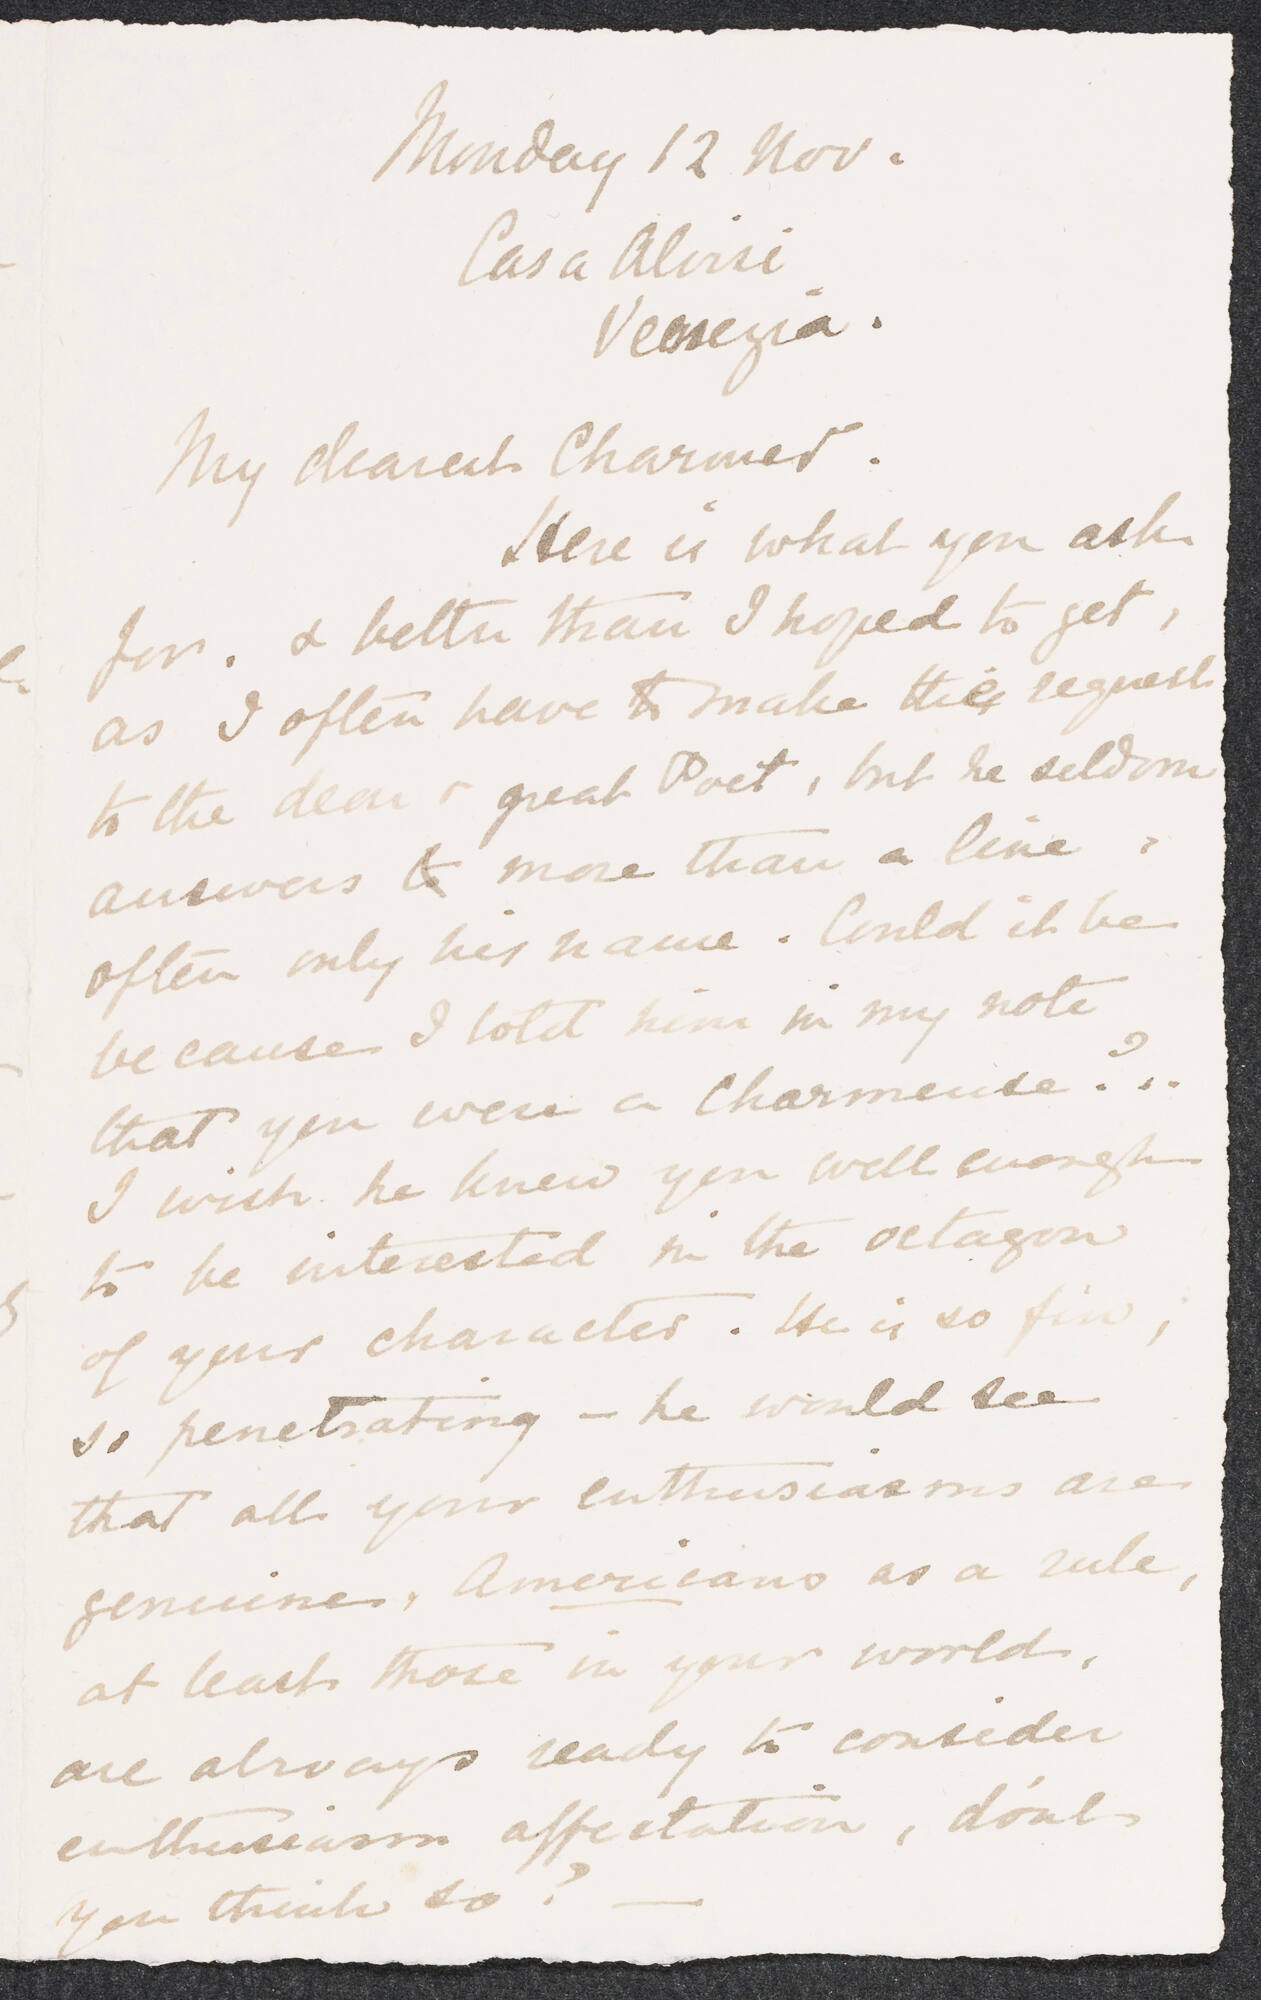 Monday 12 Nov.
Casa Alvisi
Venezia.
My dearest Charmer.
Here is what you ask
for. & better than I hoped to get,
as I often have to make this request
to the dear & great Poet, but he seldom
answers to more than a line,
often only his name. Could it be
because I told him in my note
that you were a Charmeuse?..
I wish he knew you well enough
to be interested in the octagon
of your character. He is so fin,
so penetrating – he would see
that all your enthusiasms are
genuine. Americans as a rule,
at least those in your world,
are always ready to consider
enthusiasm affectation, dont
you think so? —